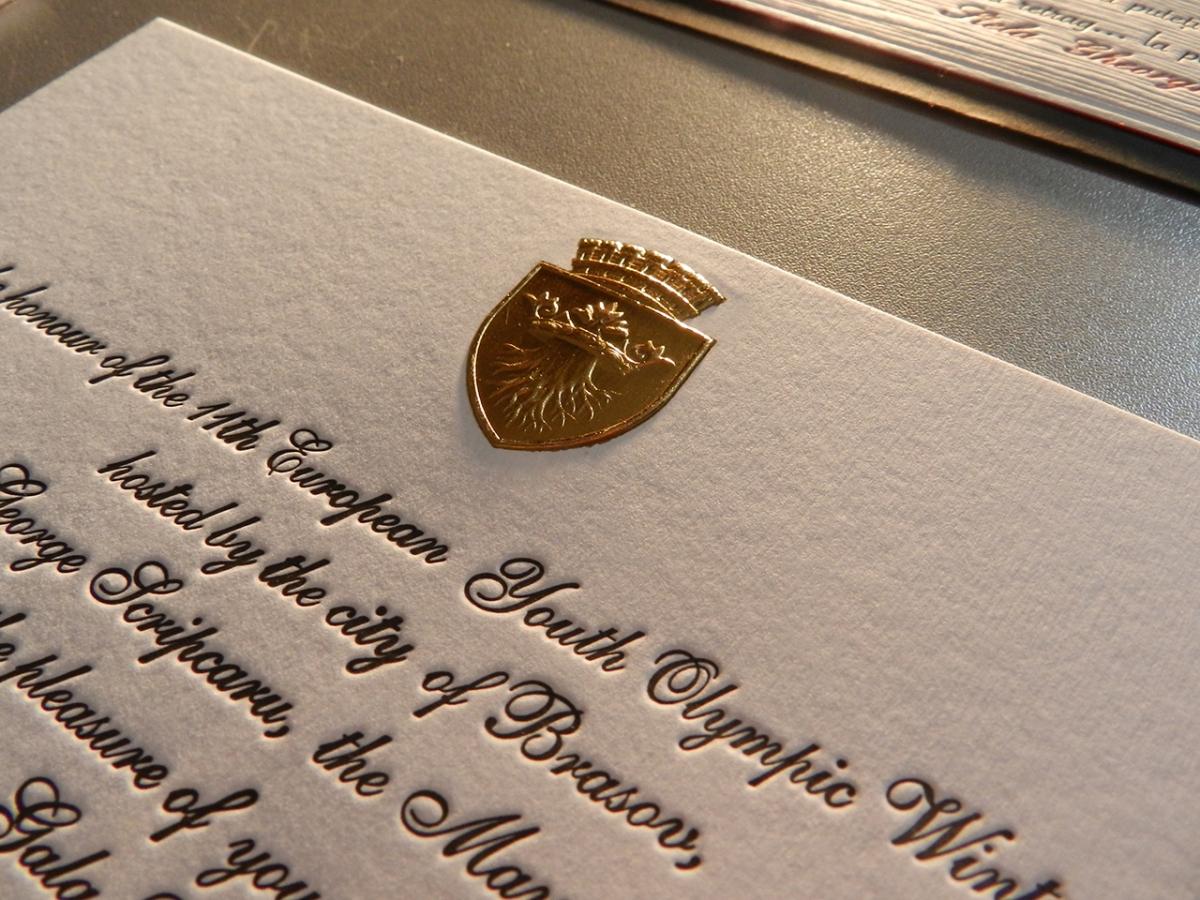 honour of the 11th European Youth Olympic Wint
hosted by the city of Brasov,
George Scripcaru, the May
the pleasure of you
Gala